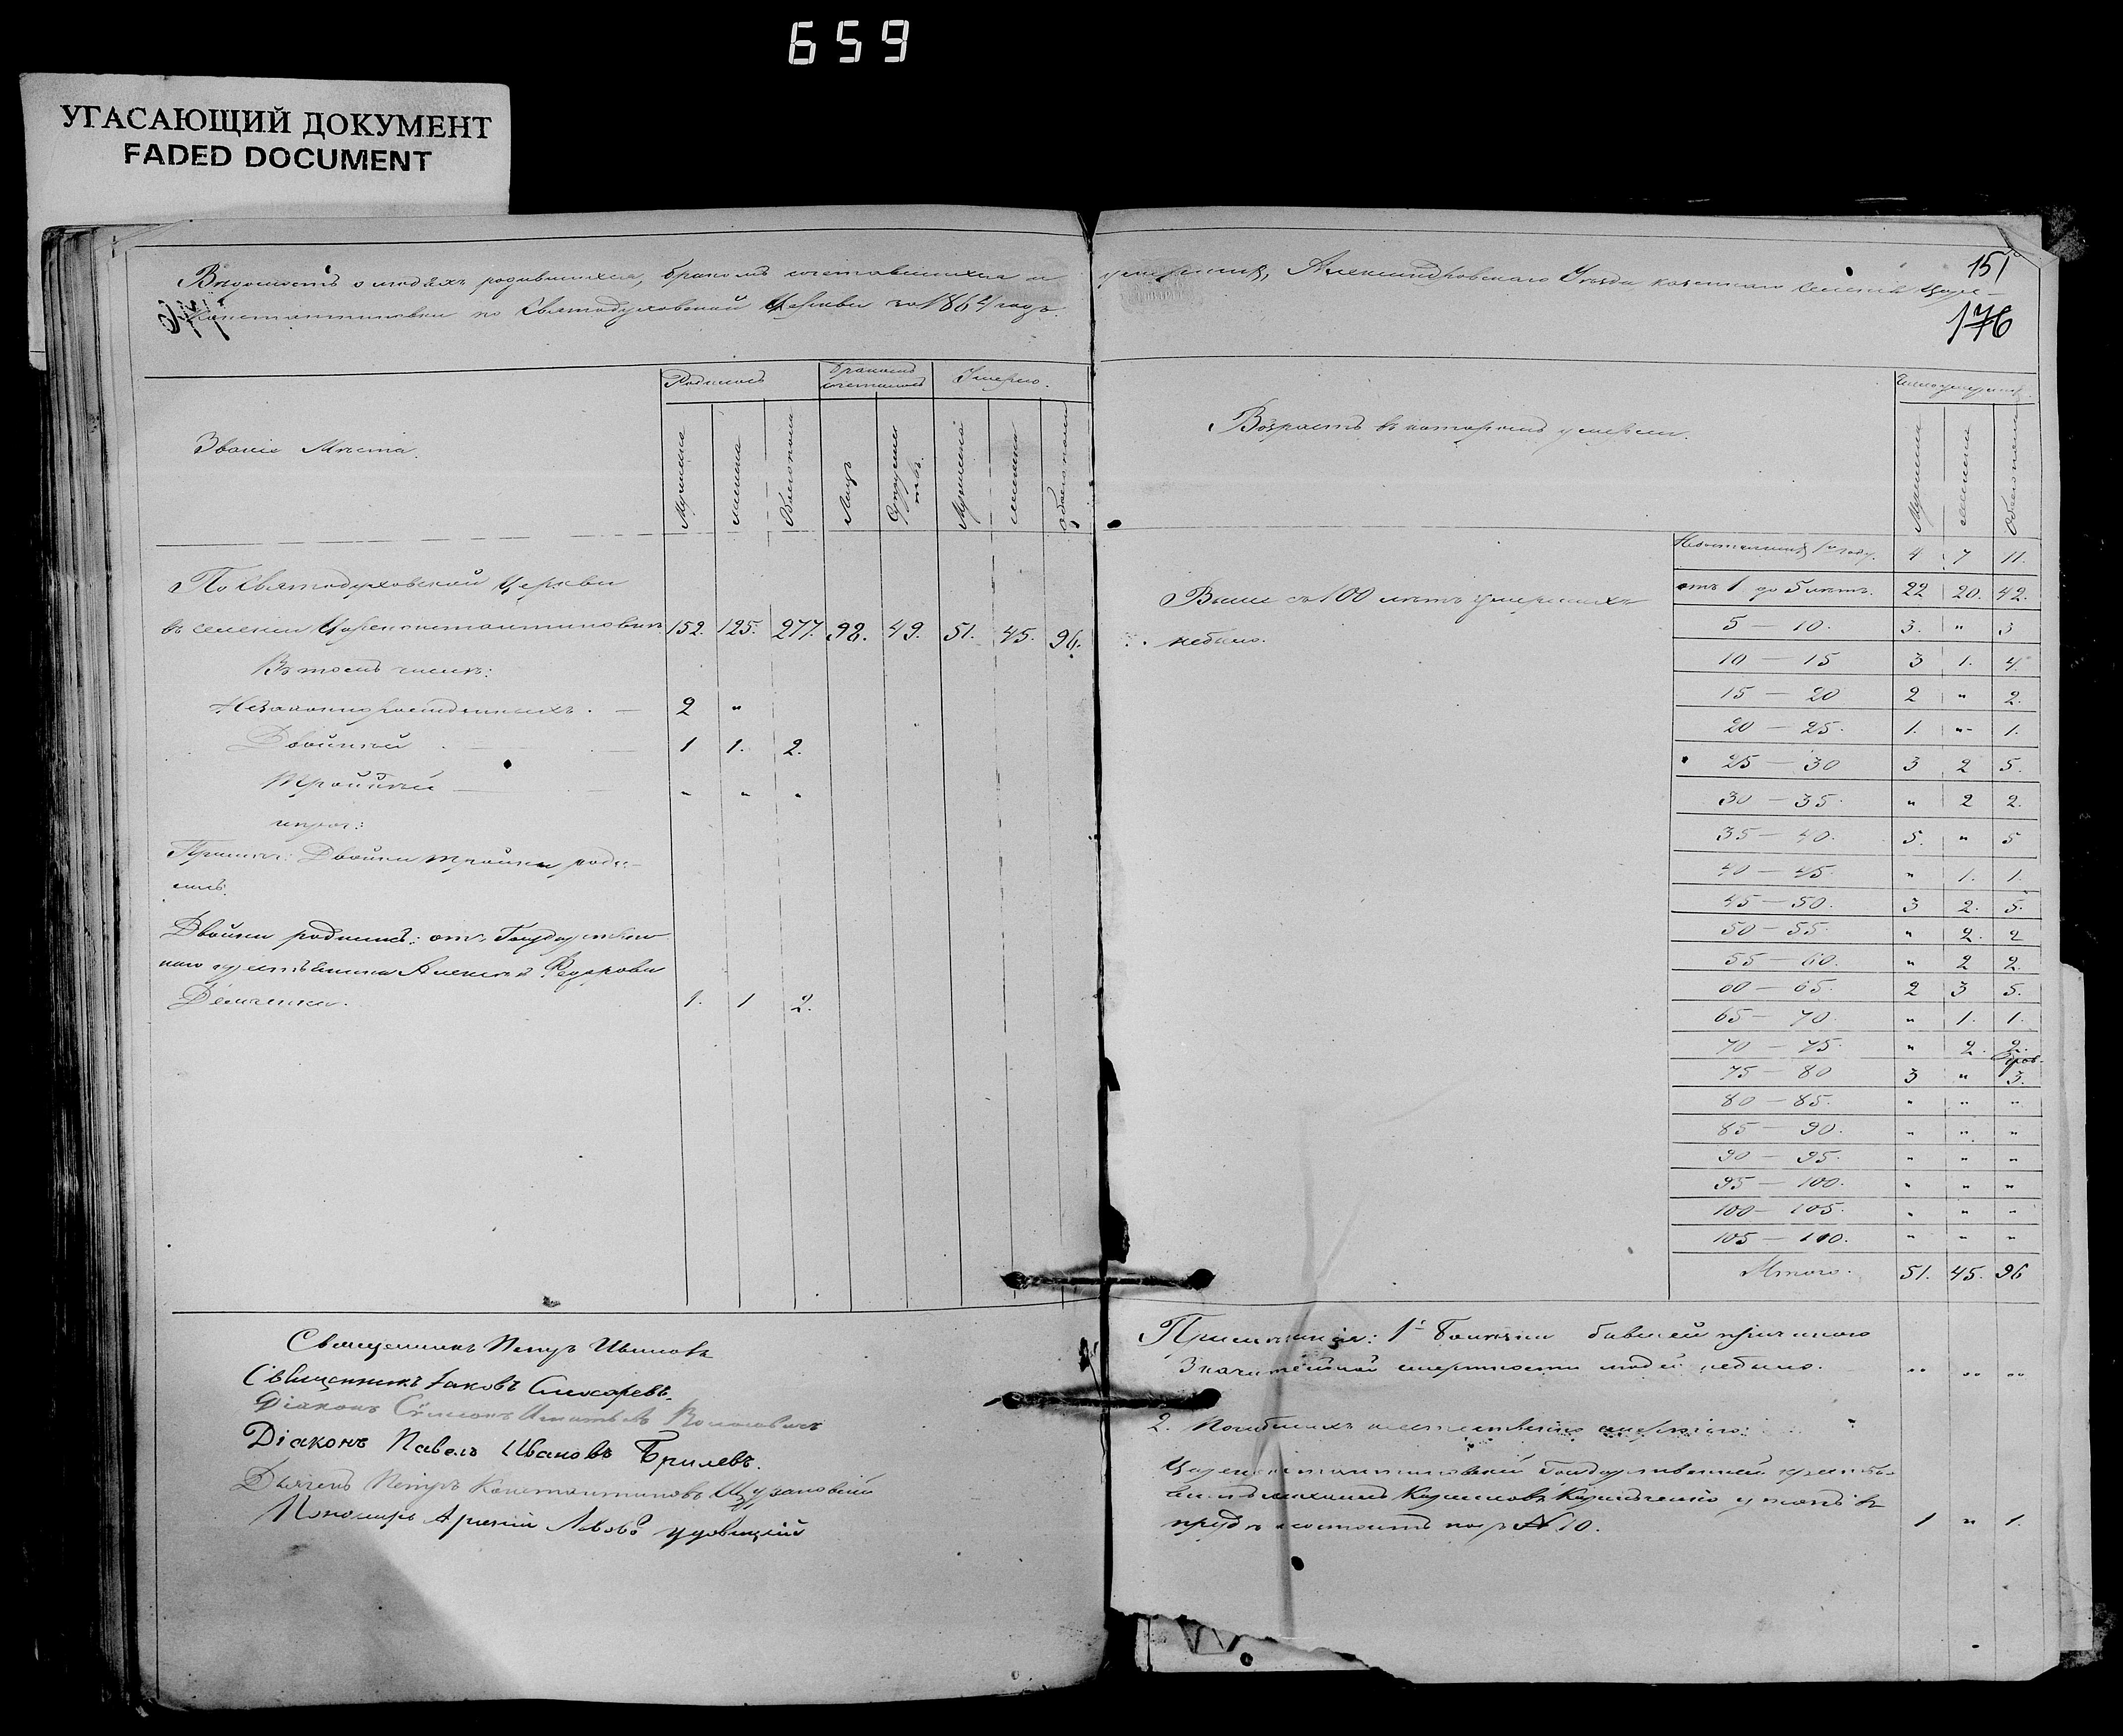 659
УГАСАЮЩИЙ ДОКУМЕНТ
FADED DOCUMENT
151
176
Вѣдомость о людяхъ родившихся, бракомъ сочетавшихся и умершихъ, Александровскаго Уѣзда казеннаго селенія Царе-
константиновки по Святодуховской Церкви за 186 годъ.
Званіе Мѣста.
Родилось
Бракомъ сочеталось
Умерло.
Мужеска
женска
Обоего пола
Лицъ
Супружествъ
Мужеска
женска
обоего пола
По Святодуховской Церкви
въ селеніи Цареконстантиновкѣ 152. 125. 277. 98. 49. 51. 45. 96.
Въ томъ числѣ:
Незаконнорожденныхъ. — 2 "
Двойни — 1 1. 2.
Тройни — " " "
Двойни родились: отъ Государствен
наго крестьянина Алексѣя Федорова
Демченка. 1. 1 2.
Священникъ Петръ Ивановъ
Священникъ Іаковъ Слюсаревъ
Діаконъ Симеонъ Игнатьевъ
Діаконъ Павелъ Ивановъ Брилевъ.
Дьячекъ Петръ Константиновъ
Пономарь Арсеній Львовъ Удовицкій
Возрастъ въ которомъ умерли.
Число умершихъ
Мужеска
женска
Обоего пола
Выше съ 100 лѣтъ умершихъ
небыло.
Недостигшихъ 1го году. 4 7 11.
отъ 1 до 5 лѣтъ. 22 20. 42.
5 — 10. 3. " 3
10 — 15 3 1. 4.
15 — 20 2 " 2.
20 — 25. 1. " 1.
25 — 30 3 2 5.
30 — 35. " 2 2.
35 — 40. 5. " 5
40 — 45. " 1. 1.
45 — 50. 3 2. 5.
50 — 55. " 2. 2
55 — 60. " 2 2.
60 — 65. 2 3 5.
65 — 70. " 1. 1.
70 — 75. " 2. 2.
75 — 80 3 " 3.
80 — 85. " " "
85 — 90. " " "
90 — 95. " " "
95 — 100. " " "
100 — 105. " " "
105 — 110. " " "
Итого. 51. 45. 96
Примѣчаніе: 1е Болѣзни бывшей причиною
Значительной смертности людей небыло. " " "
2. Погибшихъ неестественно смертію:
Цареконстантиновскій Государственный крестья-
нинъ Михаилъ Кириловъ утонъ въ
прудѣ состоитъ подъ № 10. 1 " 1.